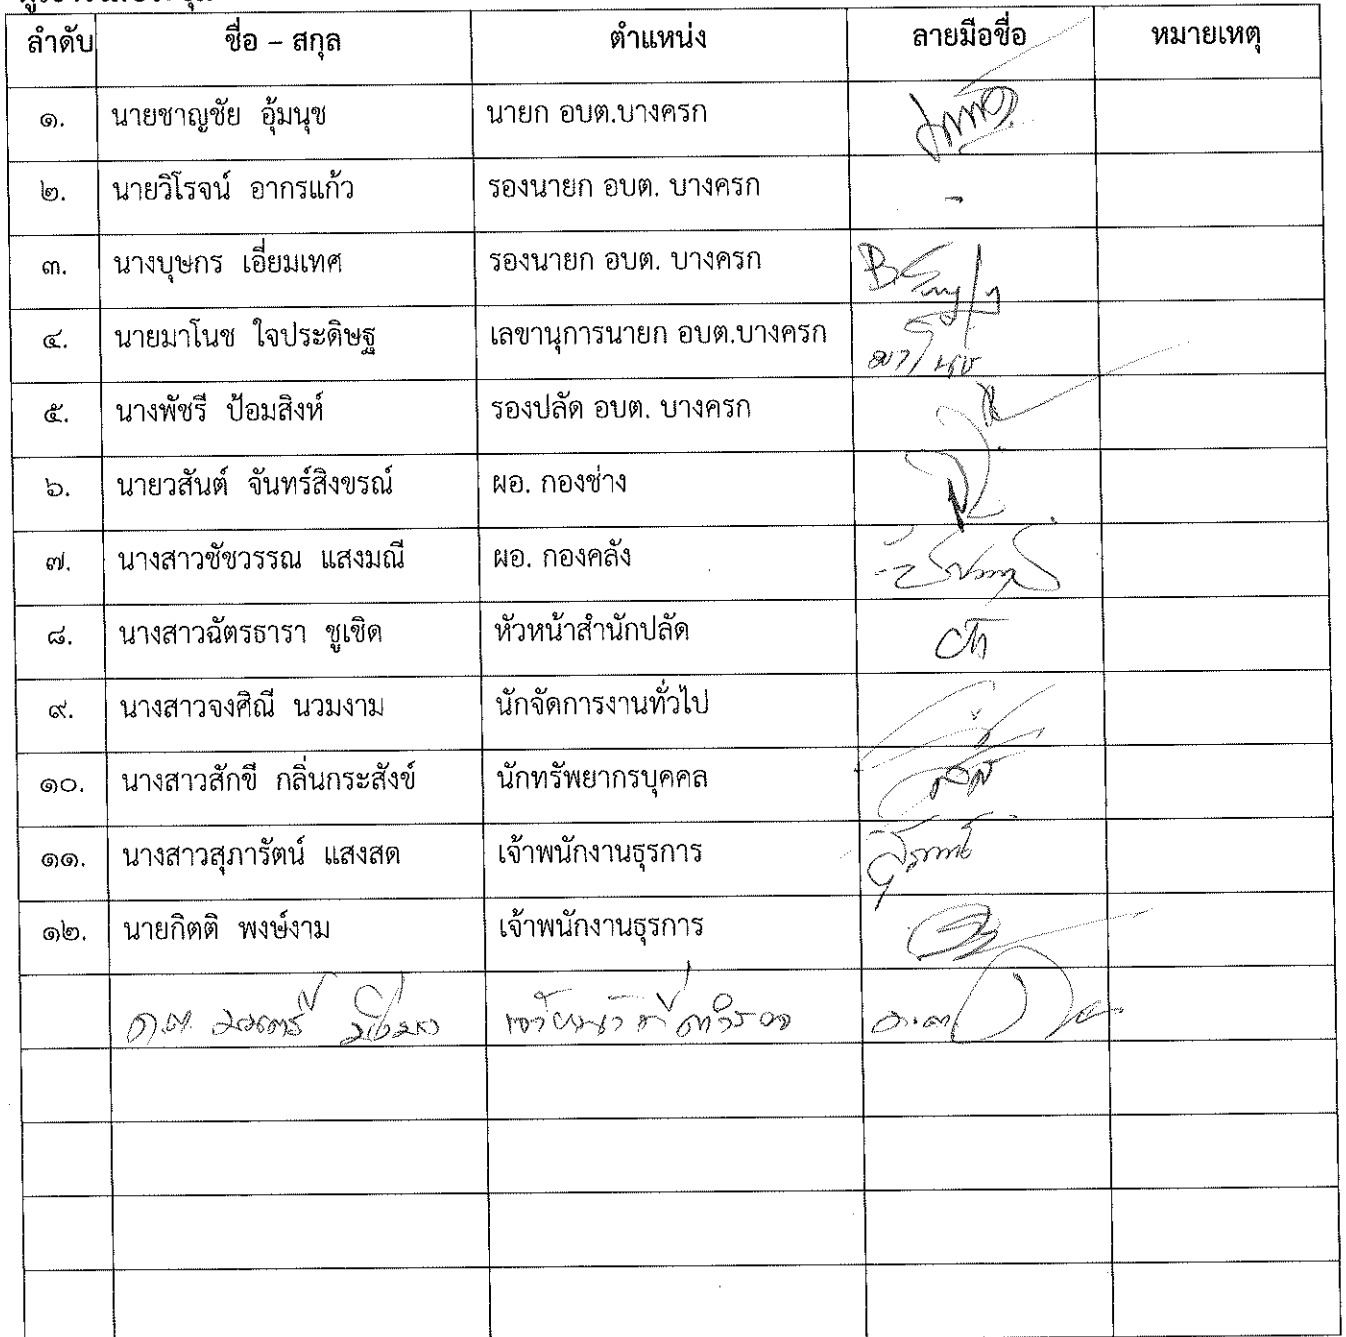 ลำดับ ชื่อ – สกุล ตำแหน่ง ลายมือชื่อ หมายเหตุ
๑. นายชาญชัย อุ้มนุช นายก อบต.บางครก
๒. นายวิโรจน์ อากรแก้ว รองนายก อบต. บางครก -
๓. นางบุษกร เอี่ยมเทศ รองนายก อบต. บางครก
๔. นายมาโนช ใจประดิษฐ เลขานุการนายก อบต.บางครก มาโนช
๕. นางพัชรี ป้อมสิงห์ รองปลัด อบต. บางครก
๖. นายวสันต์ จันทร์สิงขรณ์ ผอ. กองช่าง
๗. นางสาวชัชวรรณ แสงมณี ผอ. กองคลัง
๘. นางสาวฉัตรธารา ชูเชิด หัวหน้าสำนักปลัด
๙. นางสาวจงศิณี นวมงาม นักจัดการงานทั่วไป
๑๐. นางสาวสักขี กลิ่นกระสังข์ นักทรัพยากรบุคคล
๑๑. นางสาวสุภารัตน์ แสงสด เจ้าพนักงานธุรการ
๑๒. นายกิตติ พงษ์งาม เจ้าพนักงานธุรการ
ด.ต. มนตรี เจ้าหน้าที่ตำรวจ ด.ต.